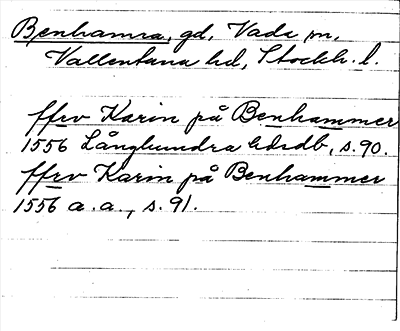 Benhamra, gd, Vada sn,
Vallentuna hd, Stockh. l.
ffrv Karin på Benhammer
1556 Långhundra hdrdb, s. 90.
ffrv Karin på Benhammer
1556 a. a., s. 91.